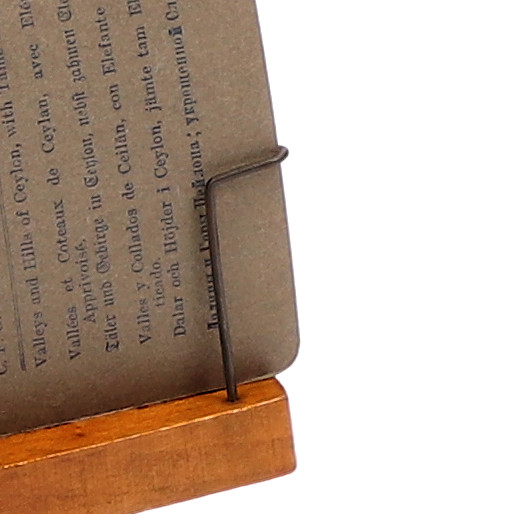 Valleys and Hills of Ceylon, with Tame
Vallées et Coteaux de Ceylan, avec Elé
Apprivoisé.
Täler und Gebirge in Ceylon, nebst zahmen Ele
Valles y Collados de Ceilán, con Elefante
ticado.
Dalar och Höjder i Ceylon, jämte tam El
Долины и Горы Цейлона; укрощенной Сл